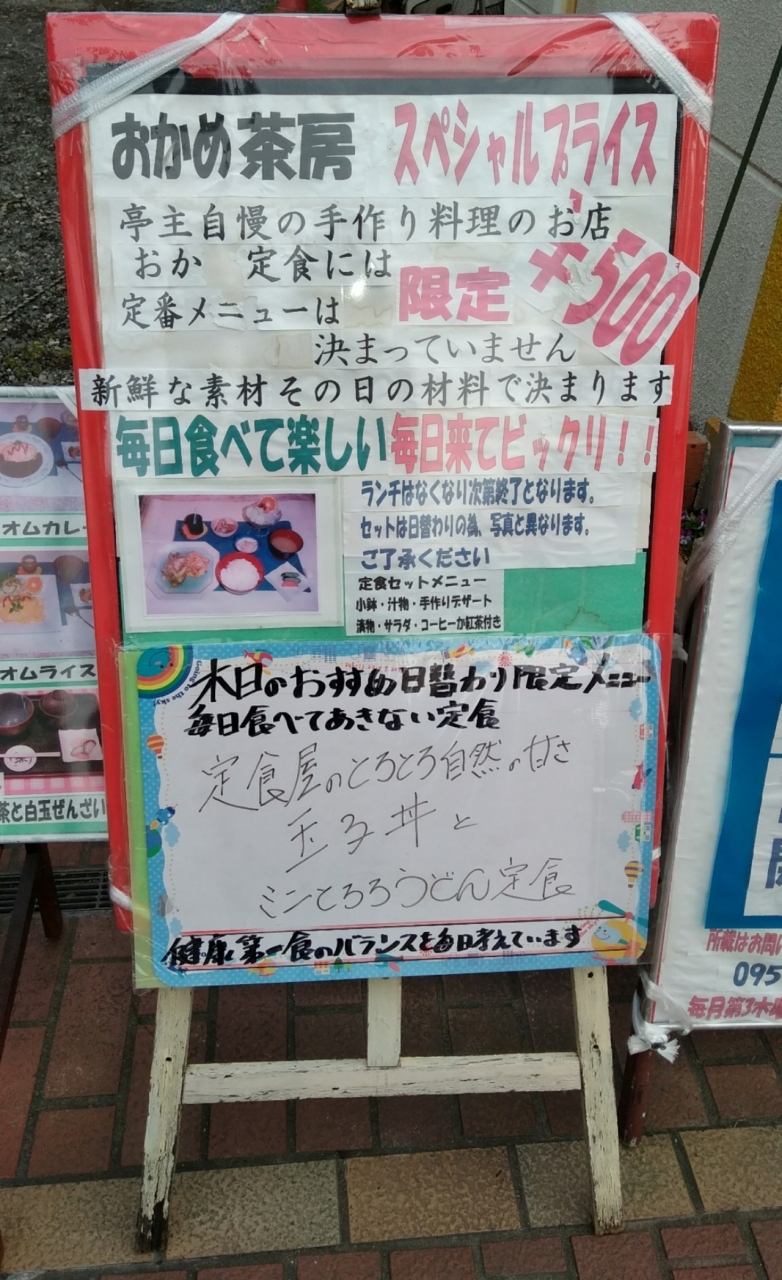 おかめ茶房 スペシャルプライス
亭主自慢の手作り料理のお店
おか 定食には
限定 ¥500
定番メニューは
決まっていません
新鮮な素材その日の材料で決まります
毎日食べて楽しい毎日来てビックリ!!
ランチはなくなり次第終了となります。
セットは日替わりの為、写真と異なります。
ご了承ください
定食セットメニュー
小鉢・汁物・手作りデザート
漬物・サラダ・コーヒーか紅茶付き
Going to the sky!
本日のおすすめ日替わり限定メニュー
毎日食べてあきない定食
定食屋のとろとろ自然の甘さ
玉子丼と
ミニとろろうどん定食
健康第一食のバランスを毎日考えています
オムカレー
オムライス
茶と白玉ぜんざい
所蔵はお問い
095
毎月第3木曜